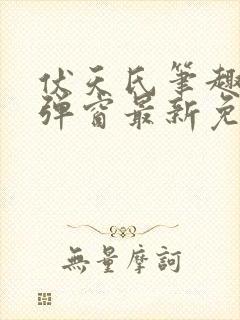 伏天氏筆趣
彈窗最新免
無量摩訶